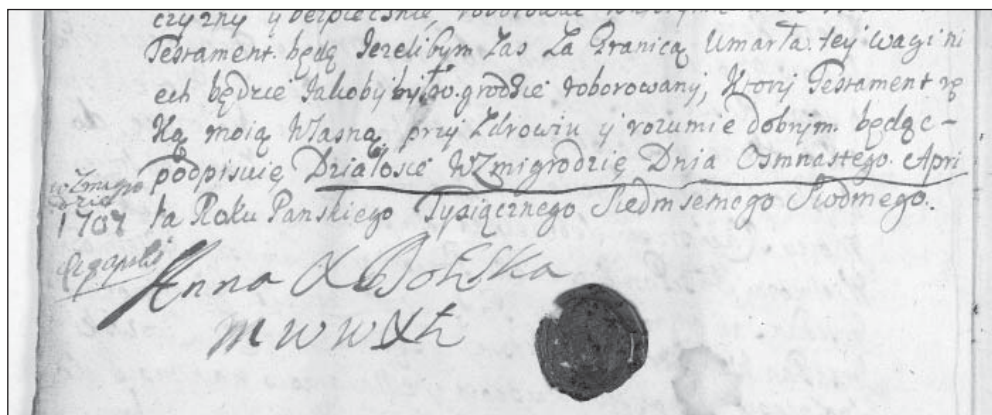 czyzny y bezpiecznie, roborować
Testament. będę Jezelibym Zas Za Granicą Umarła. tey wagi ni
ech będzie Jakoby był w. grodzie roborowany, Ktory Testament rę
Ką moią Własną, przy Zdrowiu y rozumie dobrym. będąc –
podpisuię Działosię WZmigrodzię Dnia Osmnastego. Apri
la Roku Panskiego Tysiącznego Siedmsemego Siodmego.
w Zmigro
dzie
1707
18 aprilis
Anna X Bolska
m w w X h